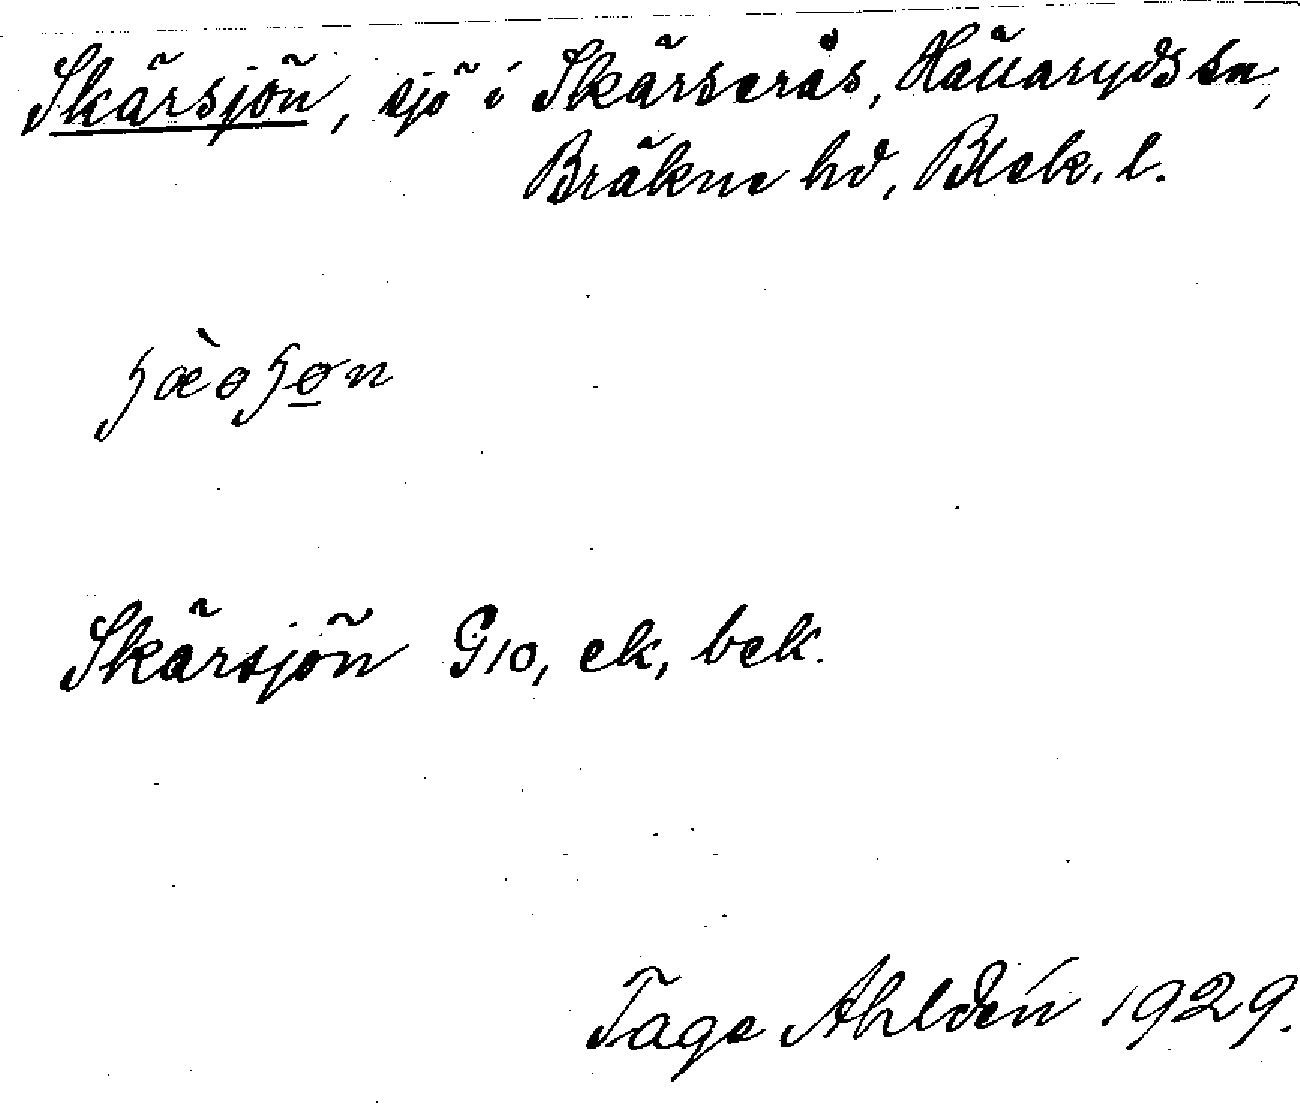 Skärsjön, sjö i Skärserås, Hällaryds sn,
Bräkne hd, Blek. l.
Skärsjön G10, ek, bek.
Tage Ahldén 1929.